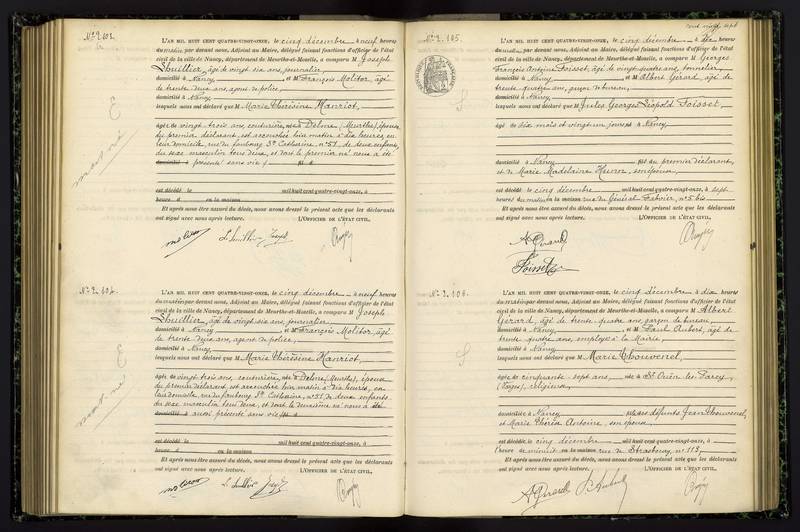 N° 2.103.
L'AN MIL HUIT CENT QUATRE-VINGT-ONZE, le cinq décembre à neuf heures
du matin par devant nous, Adjoint au Maire, délégué faisant fonctions d'officier de l'état
civil de la ville de Nancy, département de Meurthe-et-Moselle, a comparu M Joseph
Lhuillier, âgé de vingt six ans, journalier
domicilié à Nancy et M François Molitor, âgé
de trente deux ans, agent de police,
domicilié à Nancy
lesquels nous ont déclaré que M Marie Thérésine Hanriot,
âgée de vingt trois ans, couturière, née à Delme (Meurthe) épouse
du premier déclarant, est accouchée hier matin à dix heures, en
leur domicile, rue du faubourg St Catherine, n° 51, de deux enfants
du sexe masculin tous deux, et dont le premier né nous a été
domicilié à présenté sans vie
est décédé le mil huit cent quatre-vingt-onze, à
heure d en la maison
Et après nous être assuré du décès, nous avons dressé le présent acte que les déclarants
ont signé avec nous après lecture. L'OFFICIER DE L'ÉTAT CIVIL,
mort né
N° 2.104.
L'AN MIL HUIT CENT QUATRE-VINGT-ONZE, le cinq décembre à neuf heures
du matin par devant nous, Adjoint au Maire, délégué faisant fonctions d'officier de l'état
civil de la ville de Nancy, département de Meurthe-et-Moselle, a comparu M Joseph
Lhuillier, âgé de vingt six ans, journalier
domicilié à Nancy et M François Molitor, âgé
de trente deux ans, agent de police,
domicilié à Nancy
lesquels nous ont déclaré que M Marie Thérésine Hanriot,
âgée de vingt trois ans, couturière, née à Delme (Meurthe), épouse
du premier déclarant, est accouchée hier matin à dix heures, en
leur domicile, rue du faubourg St Catherine, n° 51, de deux enfants
du sexe masculin tous deux, et dont le deuxième né nous a été
domicilié à aussi présenté sans vie
est décédé le mil huit cent quatre-vingt-onze, à
heure d en la maison
Et après nous être assuré du décès, nous avons dressé le présent acte que les déclarants
ont signé avec nous après lecture. L'OFFICIER DE L'ÉTAT CIVIL,
mort né
N° 2.105.
L'AN MIL HUIT CENT QUATRE-VINGT-ONZE, le cinq décembre à dix heures
du matin par devant nous, Adjoint au Maire, délégué faisant fonctions d'officier de l'état
civil de la ville de Nancy, département de Meurthe-et-Moselle, a comparu M Georges
François Antoine Foisset, âgé de vingt quatre ans, tonnelier
domicilié à Nancy et M Albert Gérard, âgé de
trente quatre ans, garçon de bureau,
domicilié à Nancy
lesquels nous ont déclaré que M Jules Georges Léopold Foisset
âgé de dix mois et vingt un jours né à Nancy,
domicilié à Nancy fils du premier déclarant,
et de Marie Madelaine son épouse
est décédé le cinq décembre mil huit cent quatre-vingt-onze, à sept
heures du matin en la maison rue du Général Fabvier, n° 5 bis
Et après nous être assuré du décès, nous avons dressé le présent acte que les déclarants
ont signé avec nous après lecture. L'OFFICIER DE L'ÉTAT CIVIL,
A Gérard
Foisset
N° 2.106.
L'AN MIL HUIT CENT QUATRE-VINGT-ONZE, le cinq décembre à dix heures
du matin par devant nous, Adjoint au Maire, délégué faisant fonctions d'officier de l'état
civil de la ville de Nancy, département de Meurthe-et-Moselle, a comparu M Albert
Gérard, âgé de trente quatre ans, garçon de bureau
domicilié à Nancy et M Paul Aubert, âgé de
trente quatre ans, employé à la Mairie,
domicilié à Nancy
lesquels nous ont déclaré que M Marie Thouvenel,
âgée de cinquante sept ans, née à St Ouën les Parey,
(Vosges), religieuse
domicilié à Nancy fille des défunts Jean Thouvenel,
et Marie Thérèse Antoine, son épouse
est décédé le cinq décembre mil huit cent quatre-vingt-onze, à
l'heure de minuit en la maison rue de Strasbourg, n° 113
Et après nous être assuré du décès, nous avons dressé le présent acte que les déclarants
ont signé avec nous après lecture. L'OFFICIER DE L'ÉTAT CIVIL,
A Gérard P. Aubert